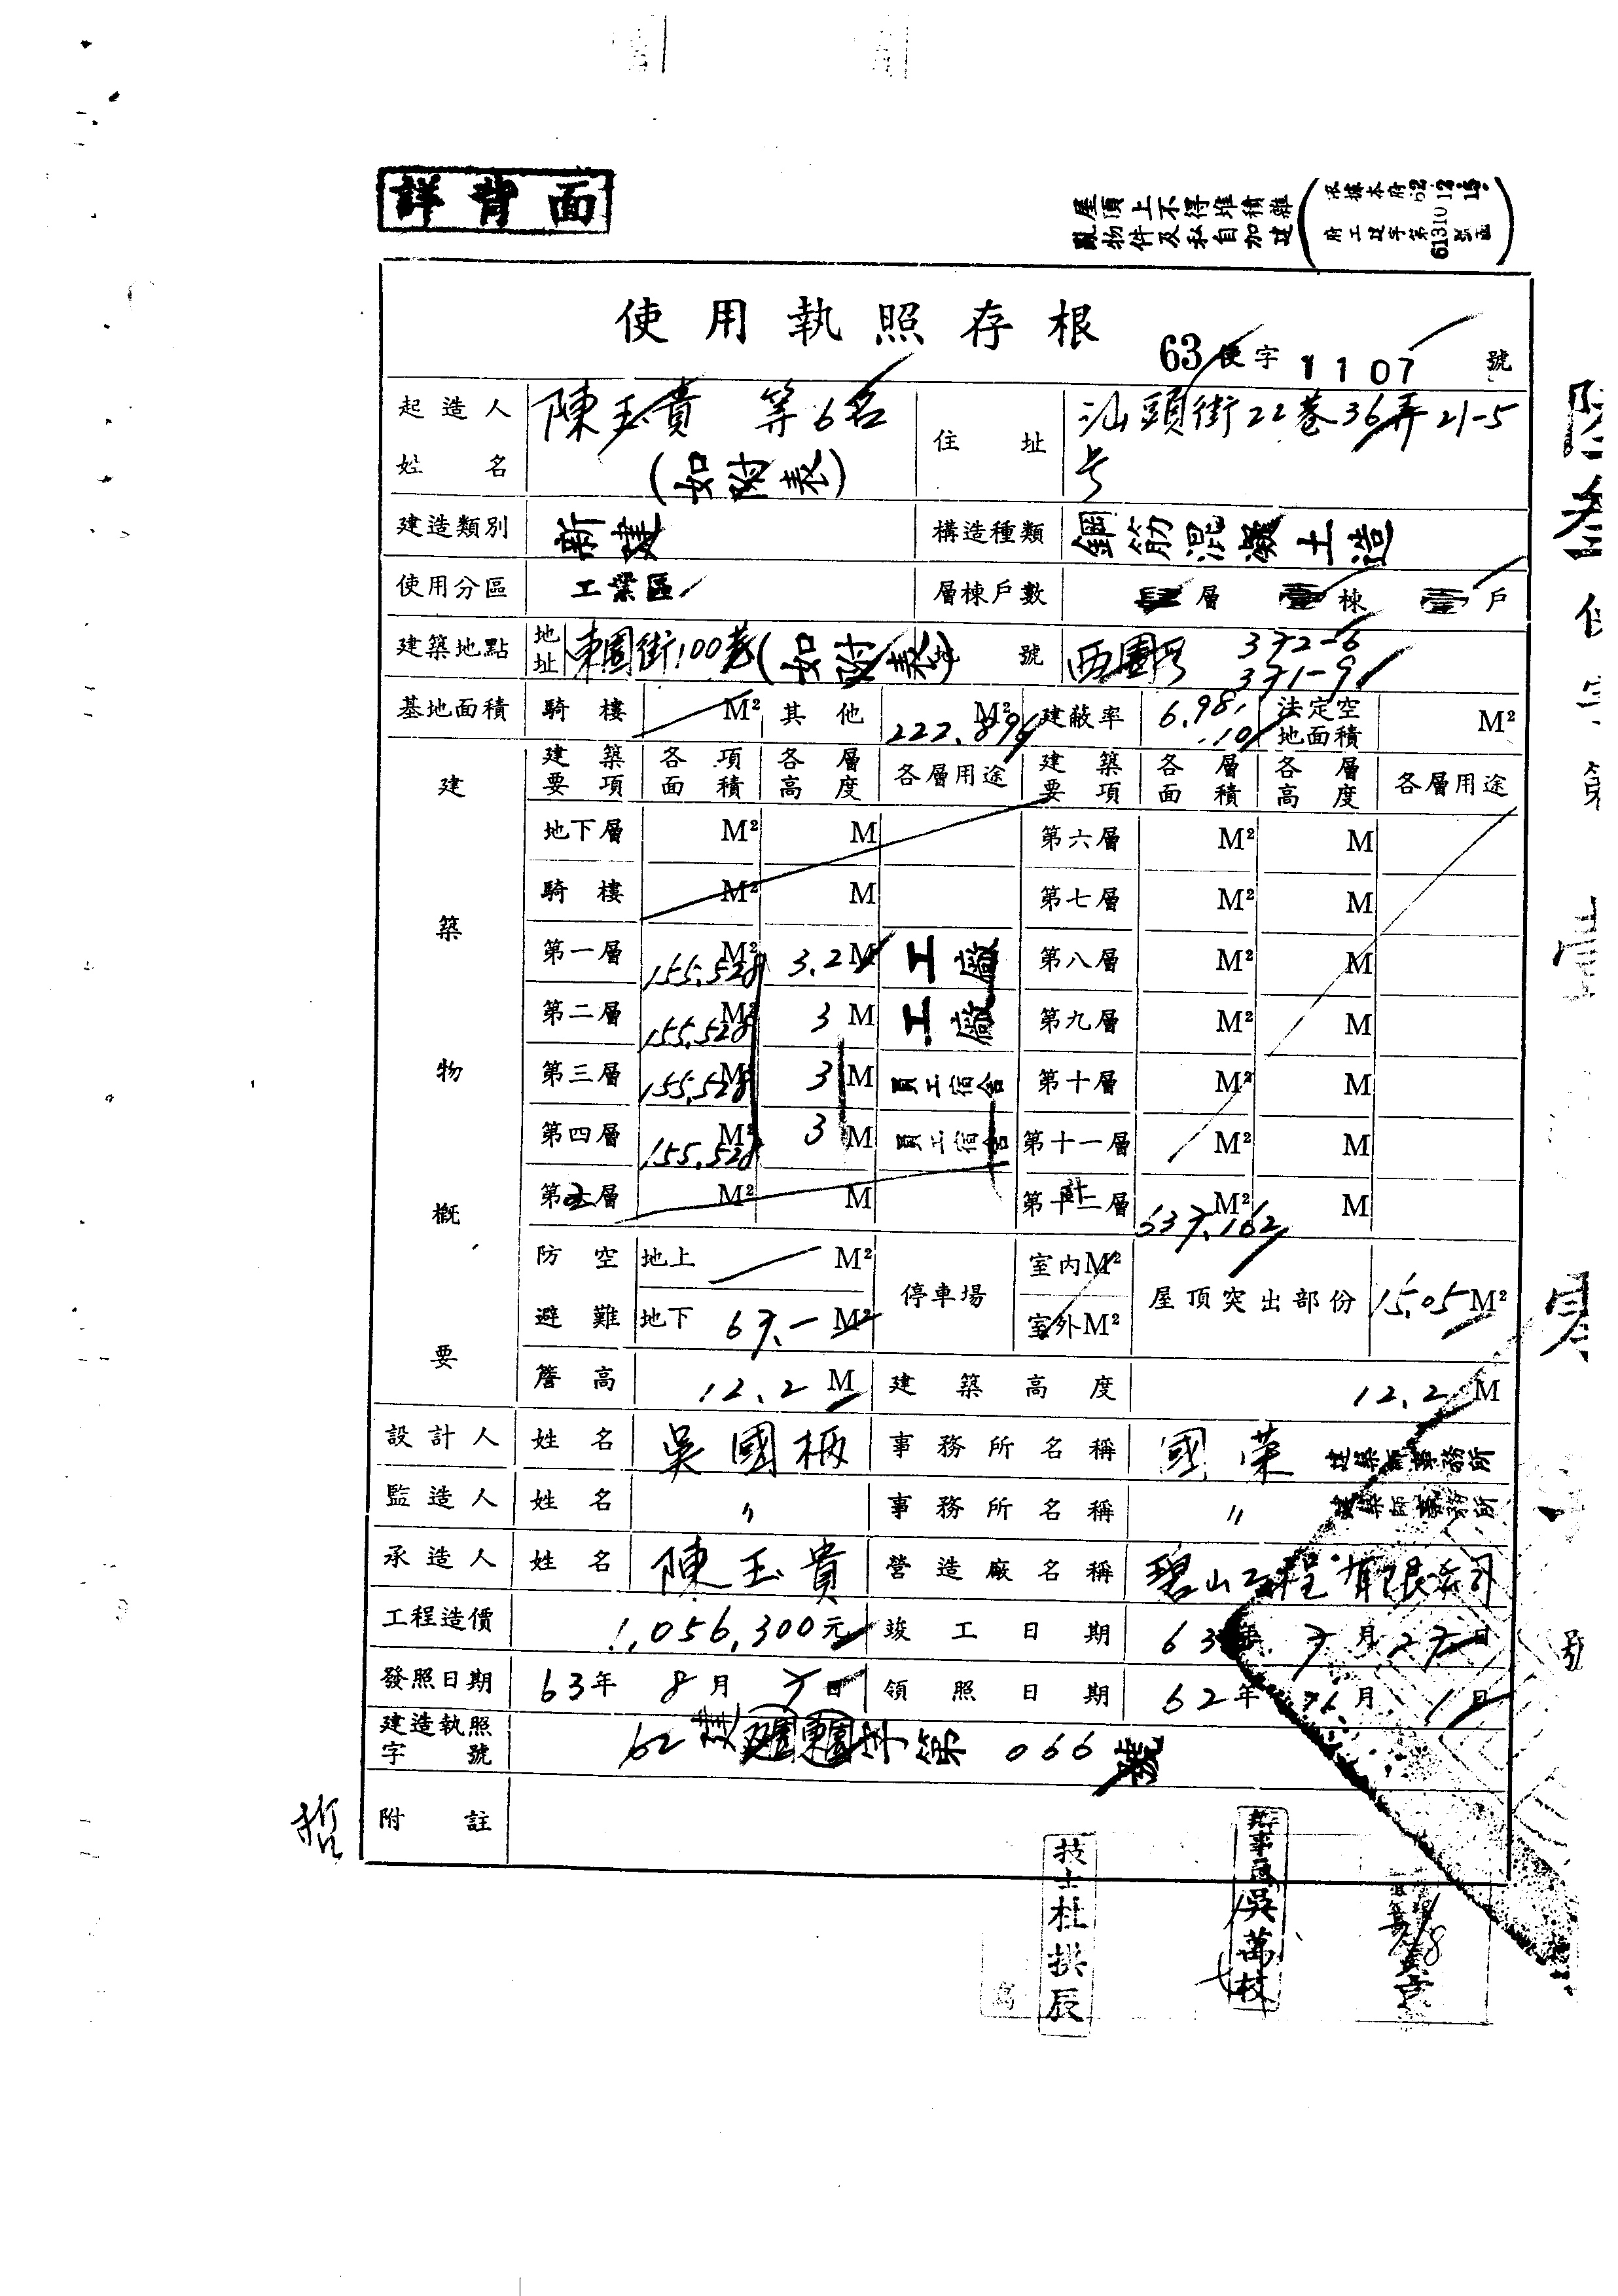 詳背面
屋頂上不得堆積雜
亂物件及私自加建
使用執照存根
63使字1107號
起造人姓名 陳玉貴 等6名 (如附表) 住址 汕頭街22巷36弄21-5号
建造類別 新建 構造種類 鋼筋混凝土造
使用分區 工業區 層棟戶數 層 壹棟 壹戶
建築地點 地址 東園街100巷(如附表) 地號 西園段 372-6 371-9
基地面積 騎樓 M² 其他 222.896 M² 建蔽率 6.98/10 法定空地面積 M²
建築物概要
建築要項 各項面積 各層高度 各層用途 建築要項 各層面積 各層高度 各層用途
地下層 M² M 第六層 M² M
騎樓 M² M 第七層 M² M
第一層 155.528 M² 3.2 M 工廠 第八層 M² M
第二層 155.528 M² 3 M 工廠 第九層 M² M
第三層 155.528 M² 3 M 員工宿舍 第十層 M² M
第四層 155.528 M² 3 M 員工宿舍 第十一層 M² M
第五層 M² M 第十二層 計 637.162 M² M
防空避難 地上 M² 停車場 室內M² 屋頂突出部份 15.05 M²
地下 67.- M² 室外M²
簷高 12.2 M 建築高度 12.2 M
設計人 姓名 吳國柄 事務所名稱 國荣 建築師事務所
監造人 姓名 〃 事務所名稱 〃 建築師事務所
承造人 姓名 陳玉貴 營造廠名稱 碧山工程有限公司
工程造價 1,056,300元 竣工日期 63年7月27日
發照日期 63年8月7日 領照日期 62年 月1日
建造執照字號 62建 字第066號
附註
技士杜拱辰
辦事員吳萬枝